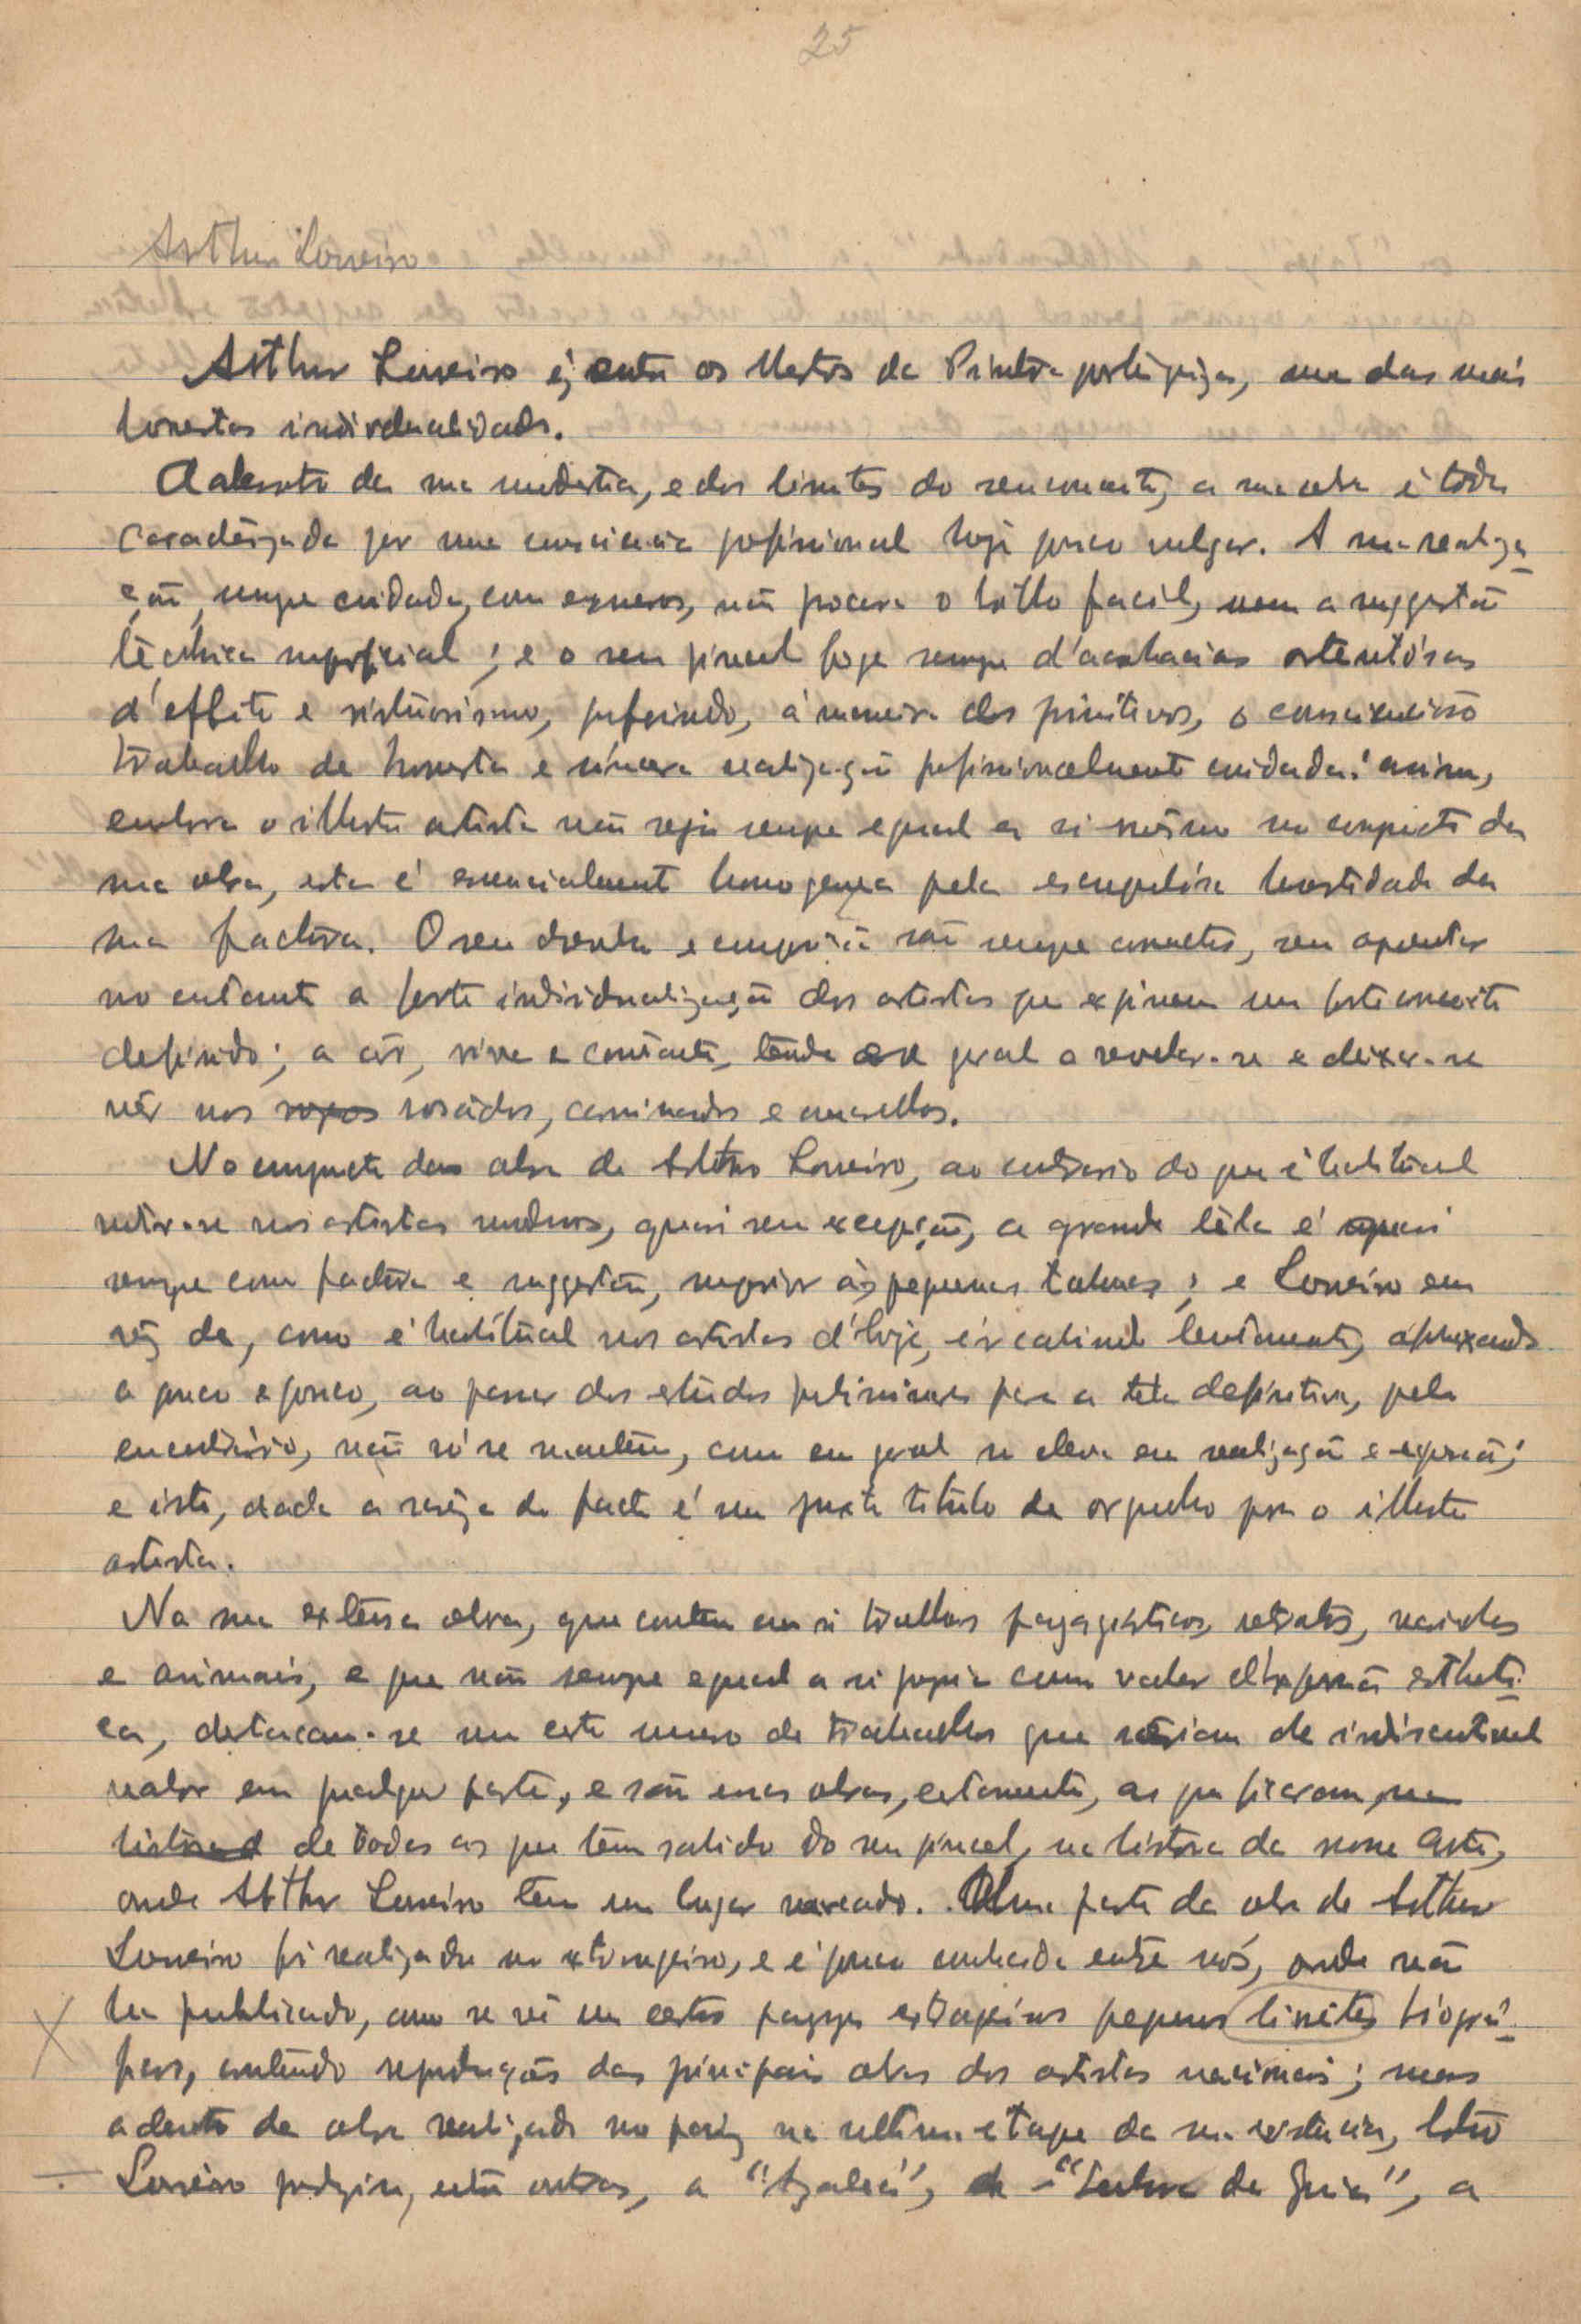 25
Arthur Loureiro
Arthur Loureiro é, entre os Mestres da Pintura portugueza, uma das mais
honestas individualidades.
da sua modestia, e dos limites do seu conceito, a sua obra é toda
caracterizada por uma consciencia profissional hoje pouco vulgar. A sua realiza-
ção, sempre cuidada, com esmeros, não procura o brilho facil, nem a suggestão
téchnica superficial; e o seu pincel foge sempre d'acrobacias ostentósas
d'effeito e virtuosismo, preferindo, á maneira dos primitivos, o consciencioso
trabalho de honesta e sincera realização profissionalmente cuidada: assim,
embora o illustre artista não seja sempre egual a si mesmo no conjuncto da
sua obra, esta é essencialmente homogenea pela escrupulósa honestidade da
sua factura. O seu desenho e composição são sempre correctos, sem apresentar
no entanto a forte individualização dos artistas que exprimem um forte conceito
definido; a côr, viva e constante, tende em geral a revelar-se e deixar-se
vêr nos roxos rosádos, carminados e amarellos.
No conjuncto da obra de Arthur Loureiro, ao contrario do que é habitual
notar-se nos artistas modernos, quasi sem excepção, a grande téla é quasi
sempre como factura e suggestão, superior ás pequenas taboas; e Loureiro em
vêz de, como é habitual nos artistas d'hoje, ír cahindo lentamente, afrouxando
a pouco e pouco, ao passar dos estudos preliminares para a tela definitiva, pelo
encontrário, não só se mantêm, como em geral se eleva em realização e expressão;
e isto, dada a do facto é um justo titulo de orgulho para o illustre
artista.
Na sua extensa obra, que contem em si trabalhos paysagisticos, retratos, marinhas
e animais, e que não sempre egual a si propria como valor d'expressão estheti-
ca, destacam-se um certo numero de trabalhos que seriam de indiscutivel
valor em qualquer parte, e são essas obras, certamente, as que ficaram, na
historia de todas as que têm sahido do seu pincel, na historia da nossa Arte,
onde Arthur Loureiro tem um lugar marcado. Uma parte da obra de Arthur
Loureiro foi realizada no extrangeiro, e é pouco conhecida entre nós, onde não
ha publicado, como se vê em certos paizes extrangeiros pequenos limites biográ-
ficos, contendo reproduções das principais obras dos artistas nacionais; mas
adentro da obra realizada no paiz, na ultima etape da sua existencia, Arthur
Loureiro produziu, entre outras, a "Azaleia", a "Senhora da Guia", a